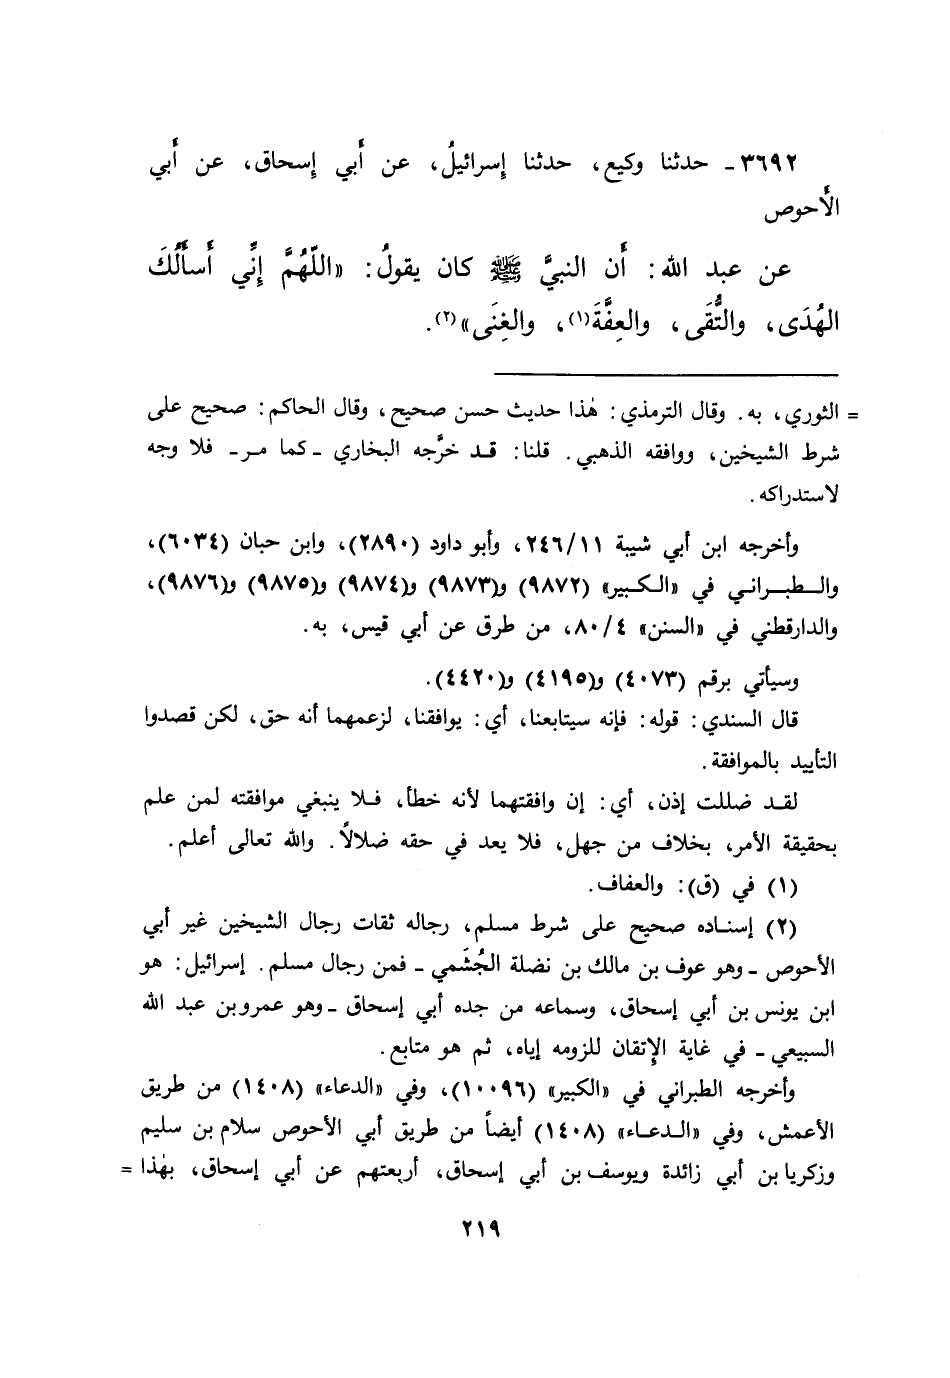 ٣٦٩٢- حدثنا وكيع، حدثنا إسرائيلُ، عن أَبي إسحاق، عن أَبي
الأَحوص
عن عبد الله: أَن النبيَّ ﷺ كان يقولُ: «اللّهُمَّ إِنِّي أَسأَلُكَ
الهُدَى، والتُّقَى، والعِفَّةَ(١)، والغِنَى»(٢).
= الثوري، به. وقال الترمذي: هٰذا حديث حسن صحيح، وقال الحاكم: صحيح على
شرط الشيخين، ووافقه الذهبي. قلنا: قد خرَّجه البخاري -كما مر- فلا وجه
لاستدراكه.
وأخرجه ابن أبي شيبة ٢٤٦/١١، وأبو داود (٢٨٩٠)، وابن حبان (٦٠٣٤)،
والطبراني في «الكبير» (٩٨٧٢) و(٩٨٧٣) و(٩٨٧٤) و(٩٨٧٥) و(٩٨٧٦)،
والدارقطني في «السنن» ٨٠/٤، من طرق عن أبي قيس، به.
وسيأتي برقم (٤٠٧٣) و(٤١٩٥) و(٤٤٢٠).
قال السندي: قوله: فإنه سيتابعنا، أي: يوافقنا، لزعمهما أنه حق، لكن قصدوا
التأييد بالموافقة.
لقد ضللت إذن، أي: إن وافقتهما لأنه خطأ، فلا ينبغي موافقته لمن علم
بحقيقة الأمر، بخلاف من جهل، فلا يعد في حقه ضلالاً. والله تعالى أعلم.
(١) في (ق): والعفاف.
(٢) إسناده صحيح على شرط مسلم، رجاله ثقات رجال الشيخين غير أبي
الأحوص - وهو عوف بن مالك بن نضلة الجُشَمي - فمن رجال مسلم. إسرائيل: هو
ابن يونس بن أبي إسحاق، وسماعه من جده أبي إسحاق -وهو عمرو بن عبد الله
السبيعي- في غاية الإتقان للزومه إياه، ثم هو متابع.
وأخرجه الطبراني في «الكبير» (١٠٠٩٦)، وفي «الدعاء» (١٤٠٨) من طريق
الأعمش، وفي «الدعاء» (١٤٠٨) أيضاً من طريق أبي الأحوص سلام بن سليم
وزكريا بن أبي زائدة ويوسف بن أبي إسحاق، أربعتهم عن أبي إسحاق، بهٰذا =
٢١٩